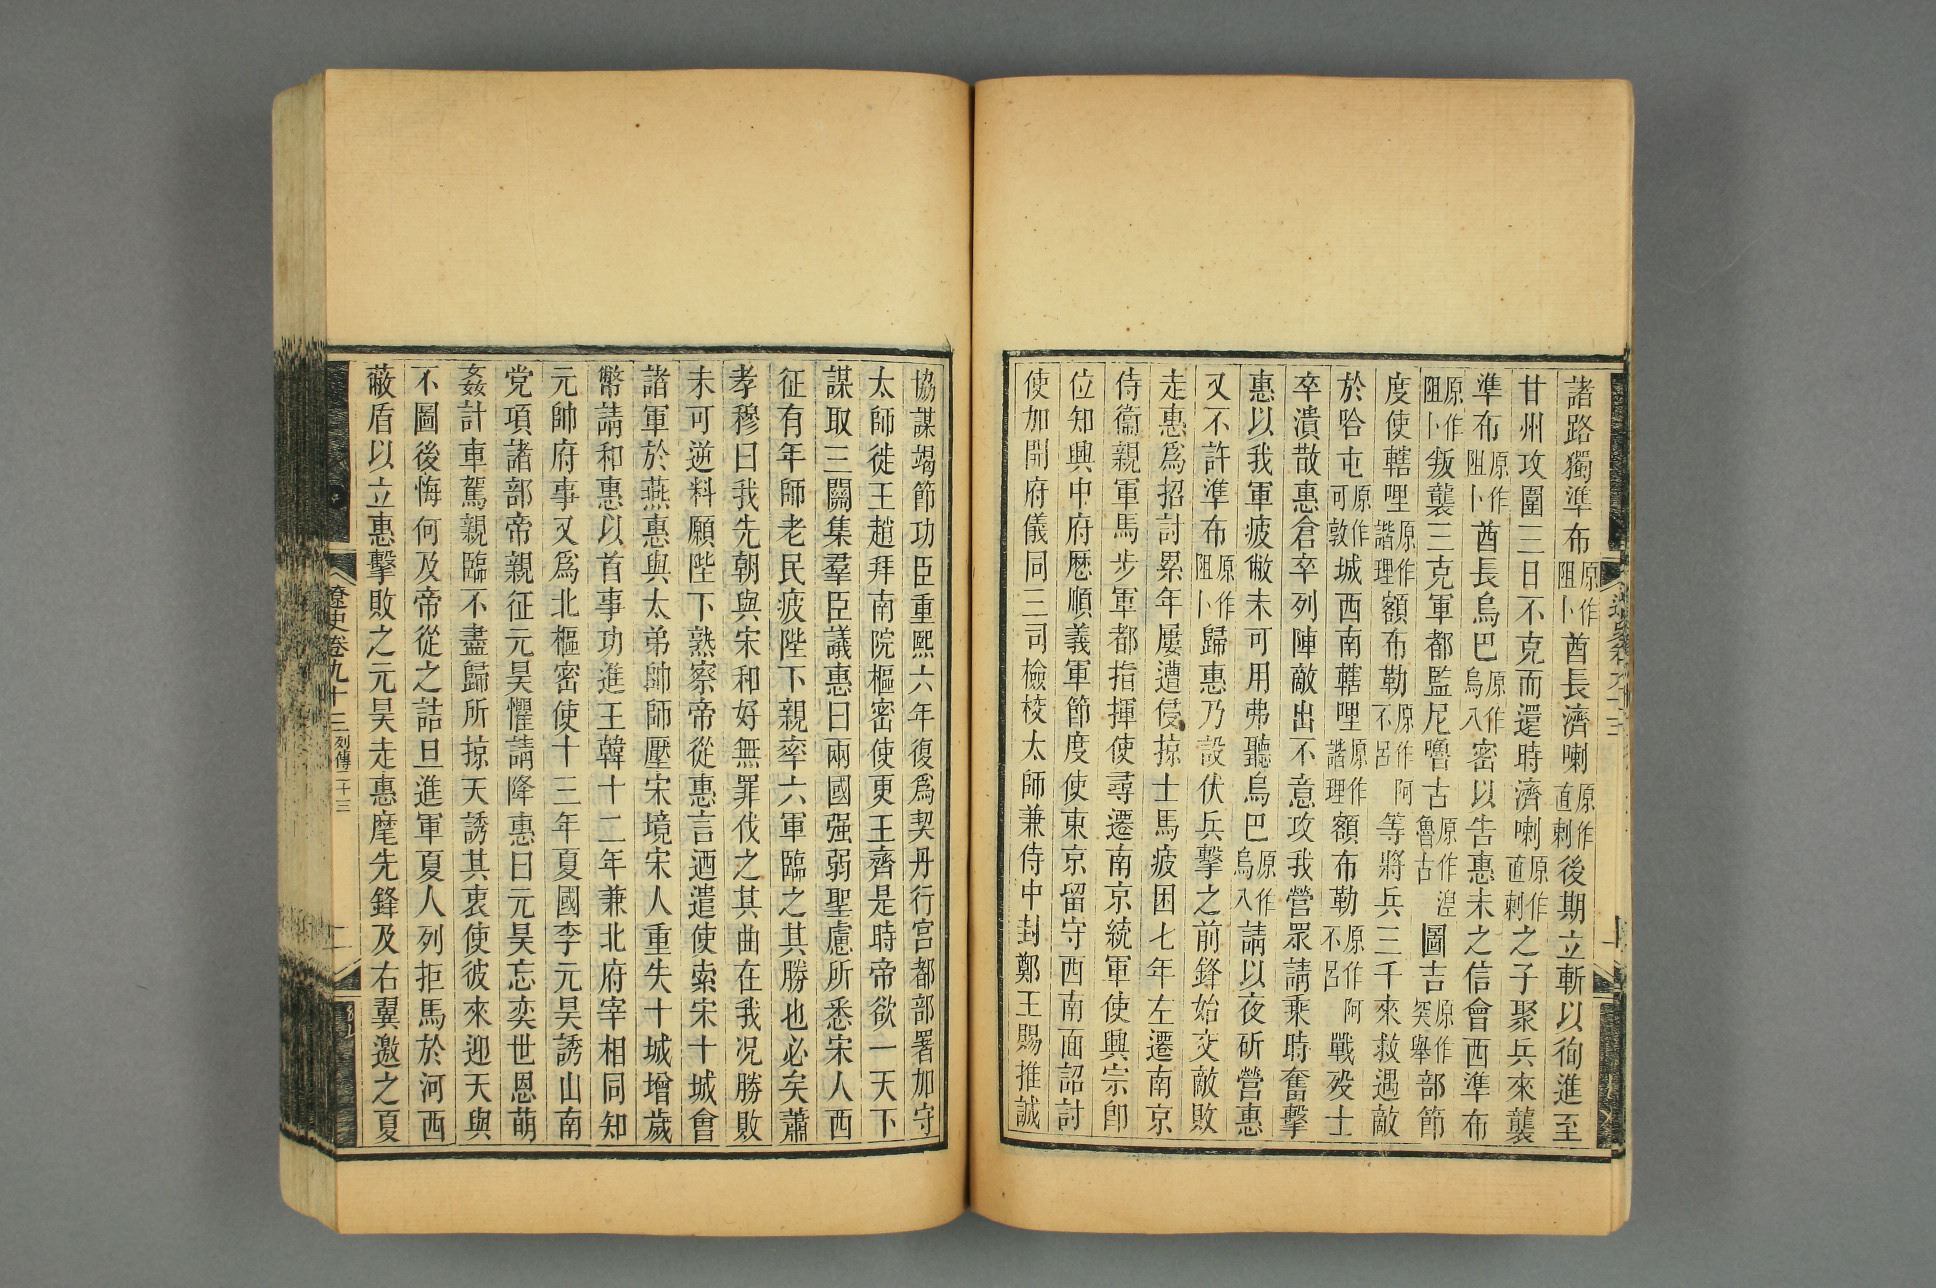 諸路獨準布原作阻卜酋長濟喇原作直剌後期立斬以徇進至
甘州攻圍三日不克而還時濟喇原作直剌之子聚兵來襲
準布原作阻卜酋長烏巴原作烏八密以告惠未之信會西準布
原作阻卜叛襲三克軍都監尼嚕古原作湼魯古圖吉原作突舉部節
度使轄哩原作諧理額布勒原作阿不呂等將兵三千來救遇敵
於哈屯原作可敦城西南轄哩原作諧理額布勒原作阿不呂戰歿士
卒潰散惠倉卒列陣敵出不意攻我營眾請乘時奮擊
惠以我軍疲敝未可用弗聽烏巴原作烏八請以夜斫營惠
又不許準布原作阻卜歸惠乃設伏兵擊之前鋒始交敵敗
走惠爲招討累年屢遭侵掠士馬疲困七年左遷南京
侍衞親軍馬步軍都指揮使尋遷南京統軍使興宗卽
位知興中府歷順義軍節度使東京留守西南面詔討
使加開府儀同三司檢校太師兼侍中封鄭王賜推誠
協謀竭節功臣重熙六年復爲契丹行宮都部署加守
太師徙王趙拜南院樞密使更王齊是時帝欲一天下
謀取三關集羣臣議惠曰兩國强弱聖慮所悉宋人西
征有年師老民疲陛下親率六軍臨之其勝也必矣蕭
孝穆曰我先朝與宋和好無罪伐之其曲在我况勝敗
未可逆料願陛下熟察帝從惠言迺遣使索宋十城會
諸軍於燕惠與太弟帥師壓宋境宋人重失十城增歲
幣請和惠以首事功進王韓十二年兼北府宰相同知
元帥府事又爲北樞密使十三年夏國李元昊誘山南
党項諸部帝親征元昊懼請降惠曰元昊忘奕世恩萌
姦計車駕親臨不盡歸所掠天誘其衷使彼來迎天與
不圖後悔何及帝從之詰旦進軍夏人列拒馬於河西
蔽盾以立惠擊敗之元昊走惠麾先鋒及右翼邀之夏
遼史卷九十三列傳二十三